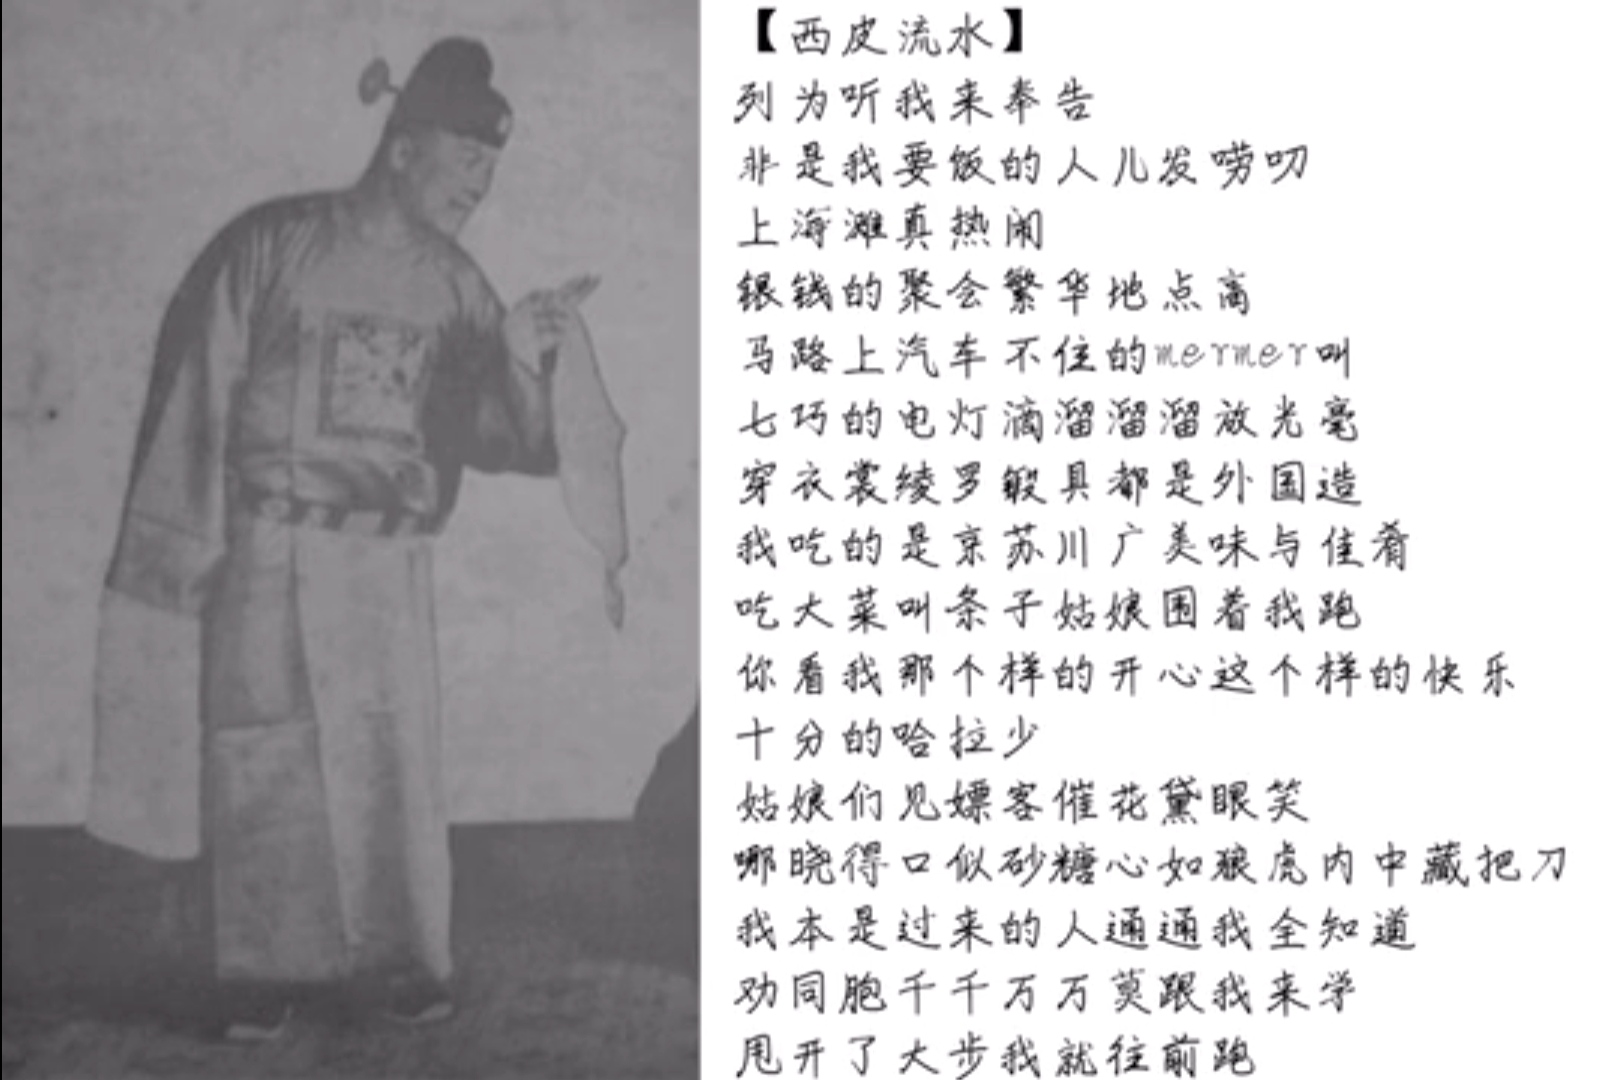 【西皮流水】
列为听我来奉告
非是我要饭的人儿发唠叨
上海滩真热闹
银钱的聚会繁华地点高
马路上汽车不住的mermer叫
七巧的电灯滴溜溜溜放光毫
穿衣裳绫罗缎具都是外国造
我吃的是京苏川广美味与佳肴
吃大菜叫条子姑娘围着我跑
你看我那个样的开心这个样的快乐
十分的哈拉少
姑娘们见嫖客催花黛眼笑
哪晓得口似砂糖心如狼虎内中藏把刀
我本是过来的人通通我全知道
劝同胞千千万万莫跟我来学
甩开了大步我就往前跑